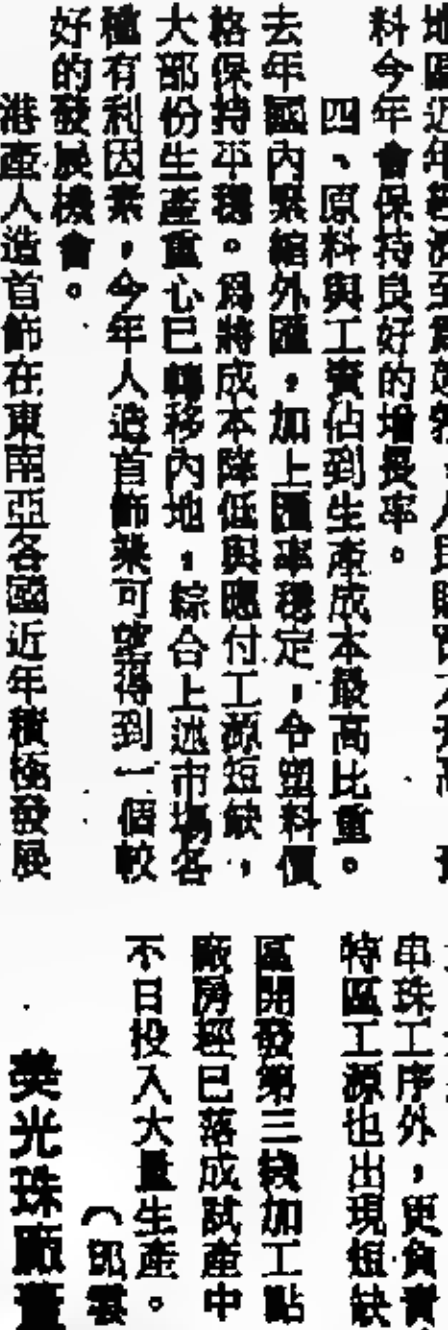 料今年會保持良好的增長率。
四、原料與工資佔到生產成本最高比重。
去年國內緊縮外匯，加上匯率穩定，令塑料價
格保持平穩。為將成本降低與應付工源短缺，
大部份生產重心已轉移內地，綜合上述市場各
種有利因素，今年人造首飾業可望得到一個較
好的發展機會。
港產人造首飾在東南亞各國近年積極發展
串珠工序外，更負責
特區工源也出現短缺
區開發第三線加工點
廠房經已落成試產中
不日投入大量生產。
光珠廠董